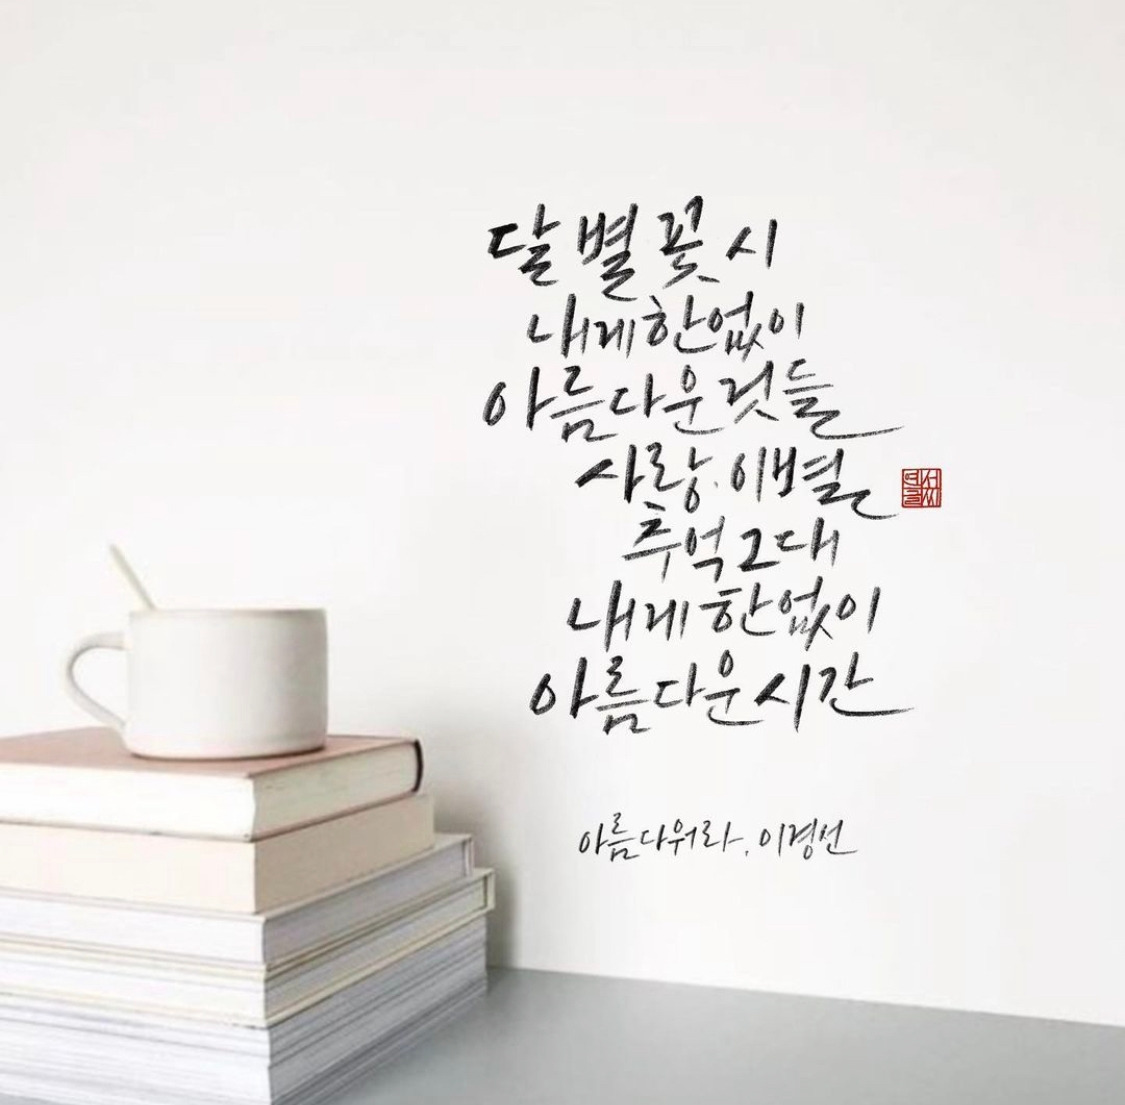 달 별 꽃 시
내게 한없이
아름다운 것들
사랑. 이별
추억 그대
내게 한없이
아름다운 시간
아름다워라, 이경선